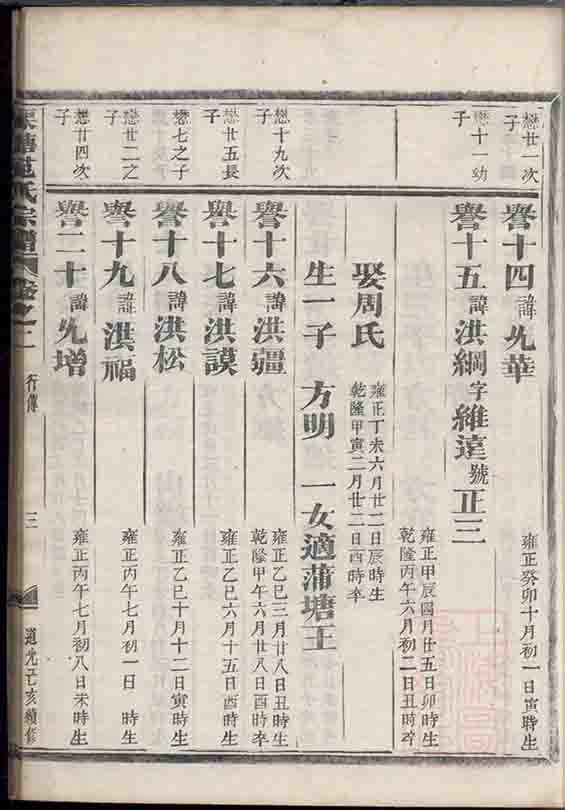 懋廿一次子
譽十四諱光華
雍正癸卯十月初一日寅時生
懋十一幼子
譽十五諱洪綱字維遠號正三
雍正甲辰四月廿五日卯時生
乾隆丙午六月初二日丑時卒
娶周氏
雍正丁未六月廿二日辰時生
乾隆甲寅二月廿二日酉時卒
生一子 方明 一女適蒲塘王
懋十九次子
譽十六諱洪疆
雍正乙巳三月廿八日丑時生
乾隆甲午六月廿八日酉時卒
懋廿五長子
譽十七諱洪謨
雍正乙巳六月十五日酉時生
懋七之子
譽十八諱洪松
雍正乙巳十月十二日寅時生
懋廿二之子
譽十九諱洪福
雍正丙午七月初一日 時生
懋廿四次子
譽二十諱光增
雍正丙午七月初八日未時生
范氏宗譜 卷之二 行傳 三 道光己亥續修